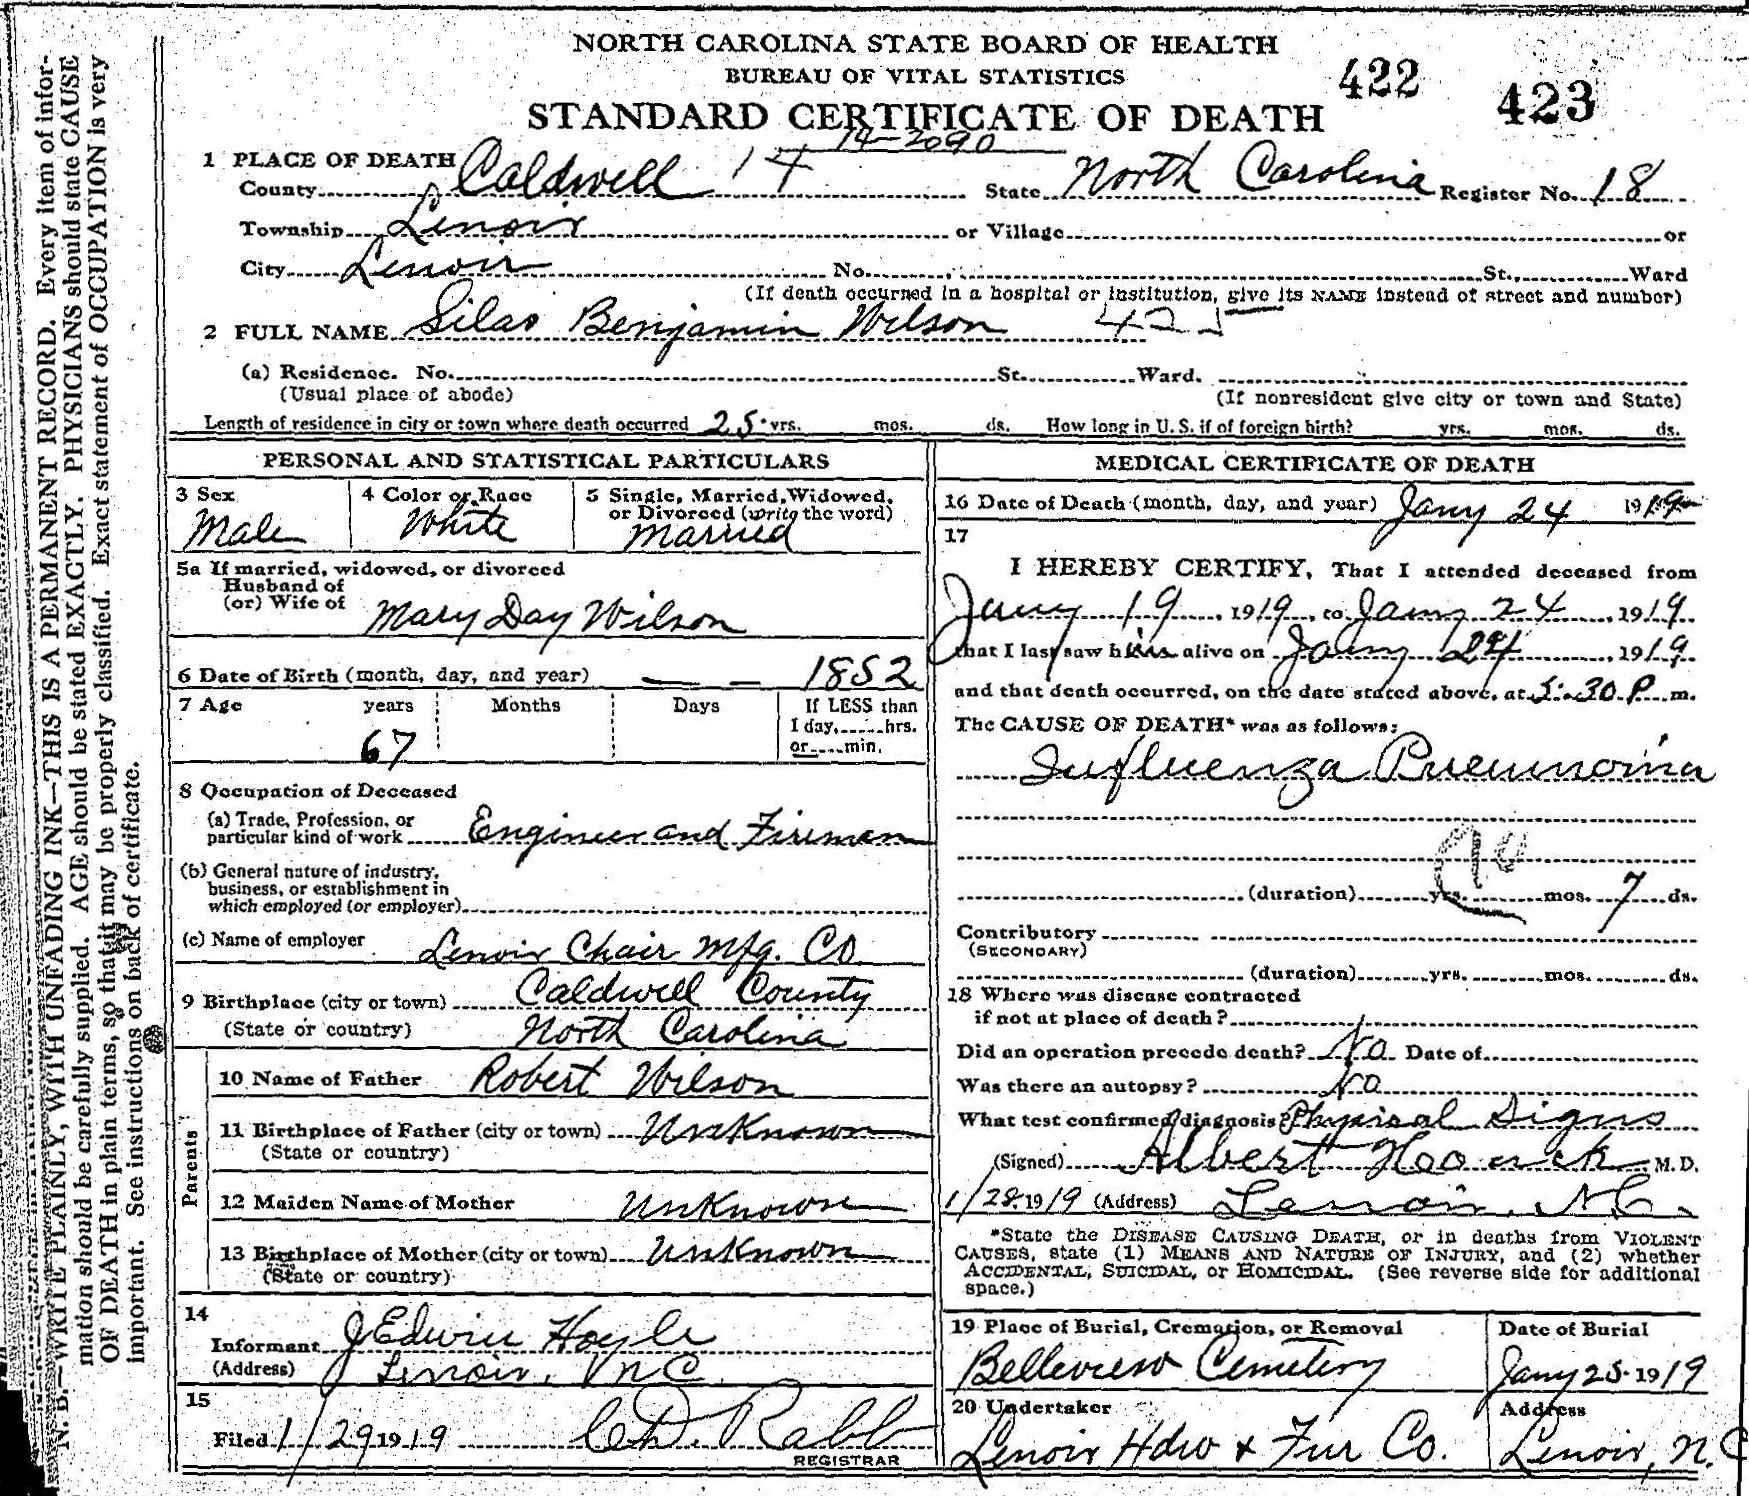 NORTH CAROLINA STATE BOARD OF HEALTH
BUREAU OF VITAL STATISTICS
422
423
STANDARD CERTIFICATE OF DEATH
14-2090
1 PLACE OF DEATH
County Caldwell 14 State North Carolina Register No. 18
Township Lenoir or Village or
City Lenoir No. St., Ward
(If death occurred in a hospital or institution, give its NAME instead of street and number)
2 FULL NAME Silas Benjamin Wilson 425
(a) Residence. No. St. Ward.
(Usual place of abode) (If nonresident give city or town and State)
Length of residence in city or town where death occurred 25 yrs. mos. ds. How long in U. S. if of foreign birth? yrs. mos. ds.
PERSONAL AND STATISTICAL PARTICULARS
3 Sex 4 Color or Race 5 Single, Married, Widowed,
or Divorced (write the word)
Male White Married
5a If married, widowed, or divorced
Husband of
(or) Wife of Mary Day Wilson
6 Date of Birth (month, day, and year) — — 1852
7 Age years Months Days If LESS than
1 day, hrs.
67 or min.
8 Occupation of Deceased
(a) Trade, Profession, or
particular kind of work Engineer and Fireman
(b) General nature of industry,
business, or establishment in
which employed (or employer)
(c) Name of employer Lenoir Chair Mfg. Co.
9 Birthplace (city or town) Caldwell County
(State or country) North Carolina
Parents
10 Name of Father Robert Wilson
11 Birthplace of Father (city or town) Unknown
(State or country)
12 Maiden Name of Mother Unknown
13 Birthplace of Mother (city or town) Unknown
(State or country)
14
Informant J Edwin Hoyle
(Address) Lenoir, N C
15
Filed 1/29 1919 C D. Rabb
REGISTRAR
MEDICAL CERTIFICATE OF DEATH
16 Date of Death (month, day, and year) Jany 24 1919
17
I HEREBY CERTIFY, That I attended deceased from
Jany 19, 1919, to Jany 24, 1919,
that I last saw him alive on Jany 24, 1919,
and that death occurred, on the date stated above, at 5:30 P. m.
The CAUSE OF DEATH* was as follows:
Influenza Pneumonia
(duration) yrs. mos. 7 ds.
Contributory
(SECONDARY)
(duration) yrs. mos. ds.
18 Where was disease contracted
if not at place of death?
Did an operation precede death? No Date of
Was there an autopsy? No
What test confirmed diagnosis? Physical Signs
(Signed) Albert M.D.
1/28. 1919 (Address) Lenoir, N.C.
*State the DISEASE CAUSING DEATH, or in deaths from VIOLENT
CAUSES, state (1) MEANS AND NATURE OF INJURY, and (2) whether
ACCIDENTAL, SUICIDAL, or HOMICIDAL. (See reverse side for additional
space.)
19 Place of Burial, Cremation, or Removal Date of Burial
Belleview Cemetery Jany 25. 1919
20 Undertaker Address
Lenoir Hdw & Fur Co. Lenoir, N.C
N. B.—WRITE PLAINLY, WITH UNFADING INK—THIS IS A PERMANENT RECORD. Every item of infor-
mation should be carefully supplied. AGE should be stated EXACTLY. PHYSICIANS should state CAUSE
OF DEATH in plain terms, so that it may be properly classified. Exact statement of OCCUPATION is very
important. See instructions on back of certificate.